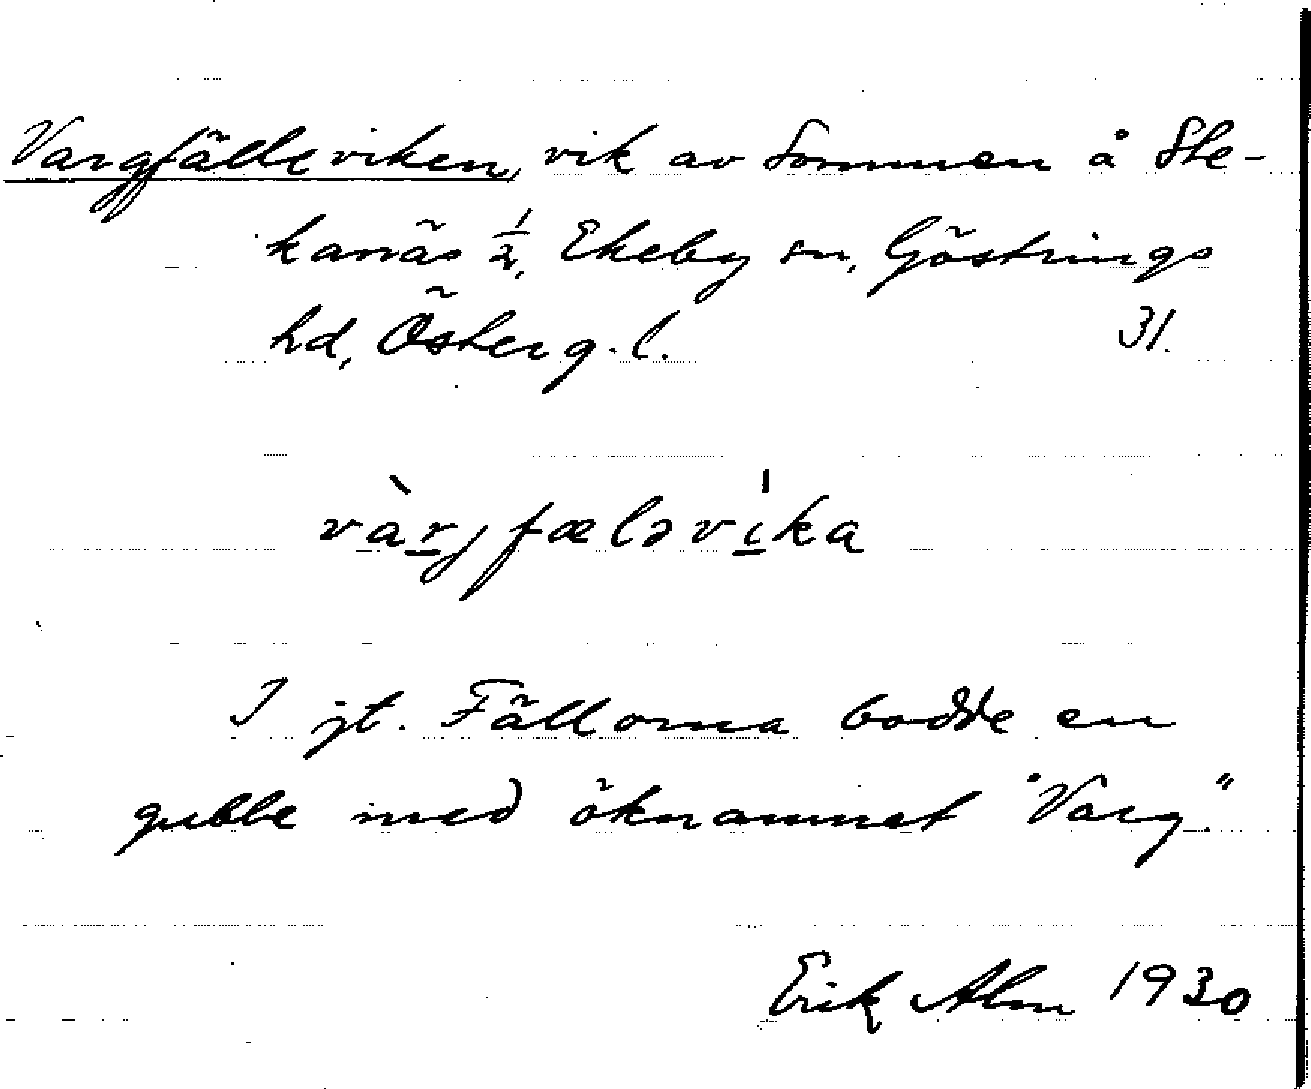 Vargfälleviken, vik av Sommen å Ste-
kanäs 1/2, Ekeby sn, Göstrings
hd, Österg. l. 31.
vàrjfæləvíka
I jt. Fällorna bodde en
gubbe med öknamnet "Varg"
Erik Alm 1930